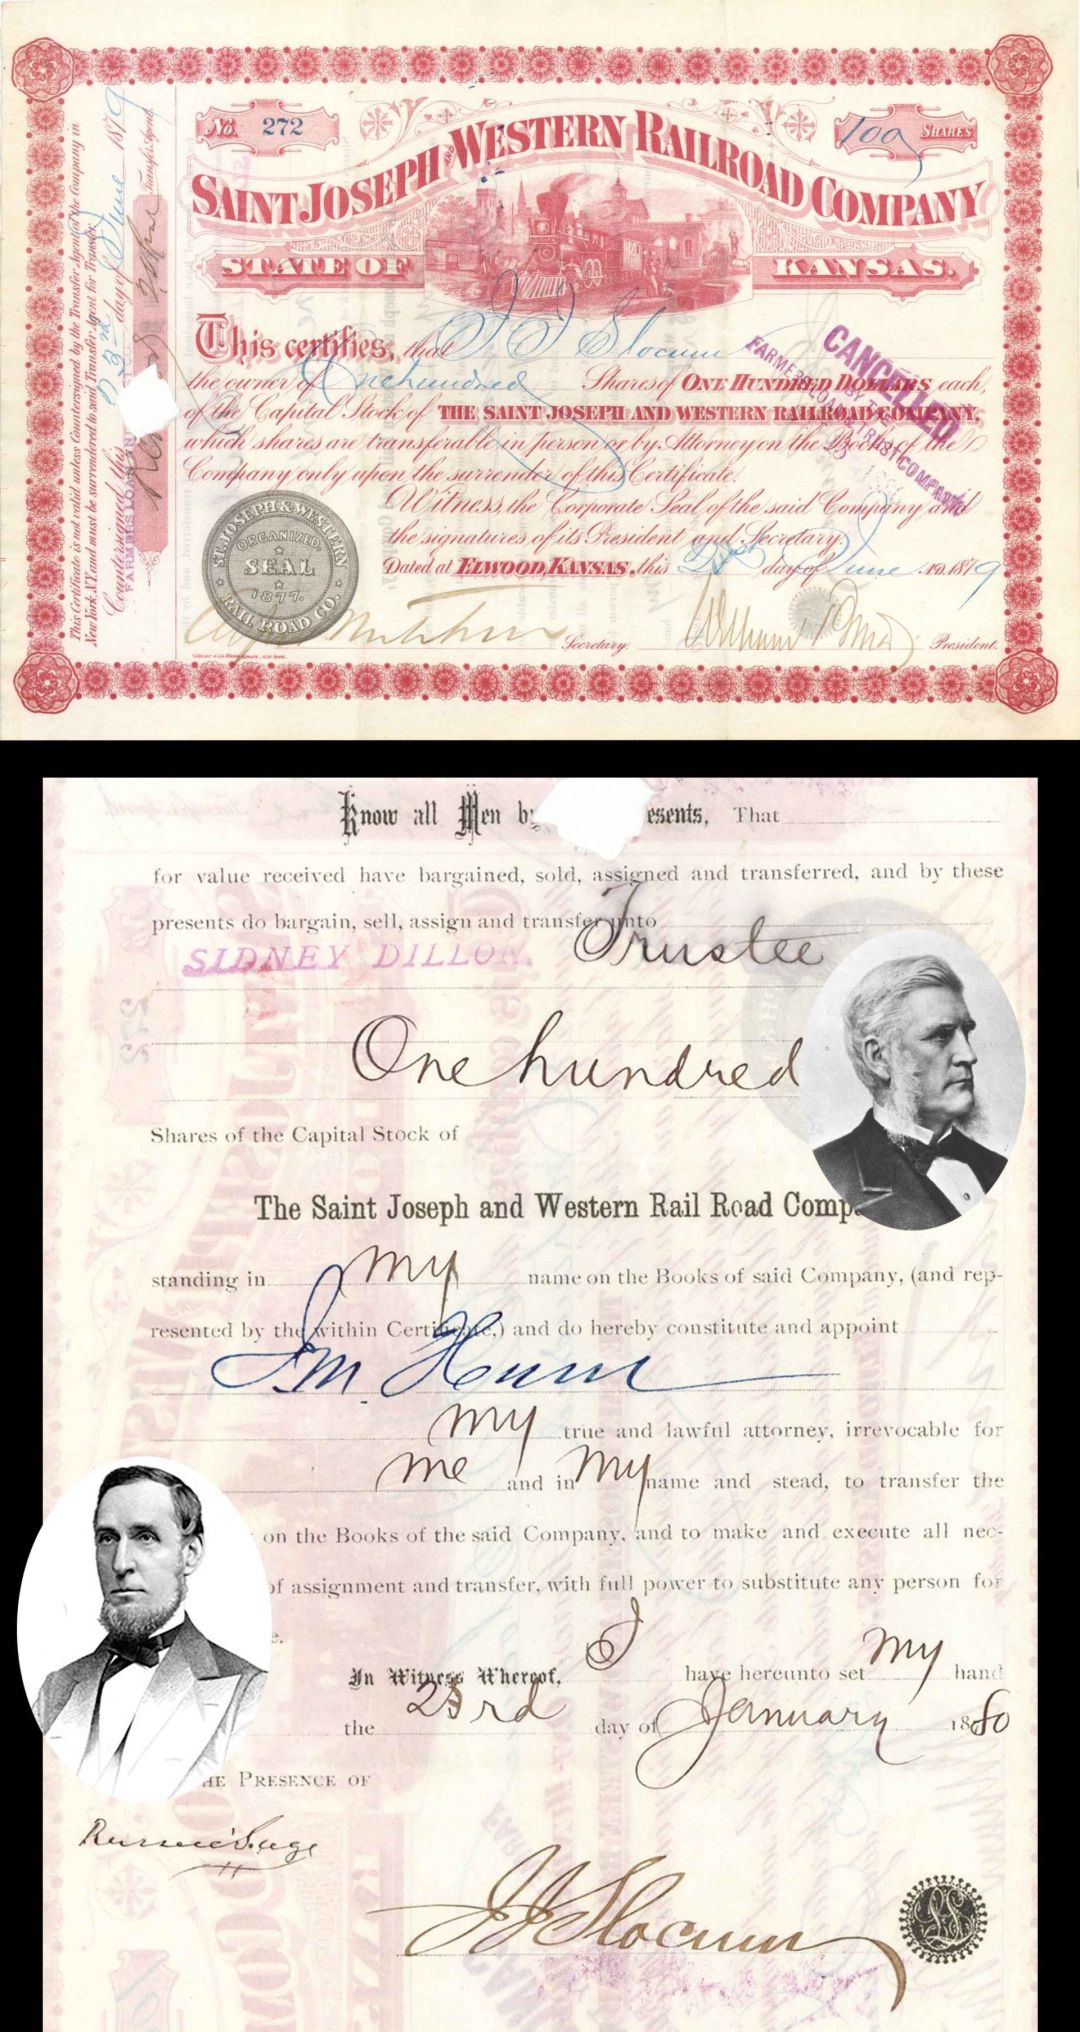 No. 272
100 SHARES
SAINT JOSEPH AND WESTERN RAILROAD COMPANY
STATE OF KANSAS.
This certifies, that J J Slocum
the owner of One hundred Shares of ONE HUNDRED DOLLARS each,
of the Capital Stock of THE SAINT JOSEPH AND WESTERN RAILROAD COMPANY,
which shares are transferable in person or by Attorney on the Books of the
Company only upon the surrender of this Certificate.
Witness, the Corporate Seal of the said Company and
the signatures of its President and Secretary.
Dated at ELWOOD, KANSAS, this 21st day of June A.D. 1879
Secretary.
President.
CANCELLED
BY THE
FARMERS LOAN & TRUST COMPANY
ST. JOSEPH & WESTERN
ORGANIZED.
SEAL
1877.
RAIL ROAD CO.
This Certificate is not valid unless Countersigned by the Transfer Agent of the Company in
New York, N.Y. and must be surrendered to said Transfer Agent for Transfer.
Countersigned this 23rd day of June 1879
FARMERS LOAN
Transfer Agent.
Know all Men by esents, That
for value received have bargained, sold, assigned and transferred, and by these
presents do bargain, sell, assign and transfer unto
SIDNEY DILLON. Trustee
One hundred
Shares of the Capital Stock of
The Saint Joseph and Western Rail Road Comp
standing in my name on the Books of said Company, (and rep-
resented by the within Certificate,) and do hereby constitute and appoint
J.M. Ham
my true and lawful attorney, irrevocable for
me and in my name and stead, to transfer the
on the Books of the said Company, and to make and execute all nec-
of assignment and transfer, with full power to substitute any person for
e.
In Witness Whereof, I have hereunto set my hand
the 23rd day of January 1880
HE PRESENCE OF
Russell Sage
J J Slocum
LS